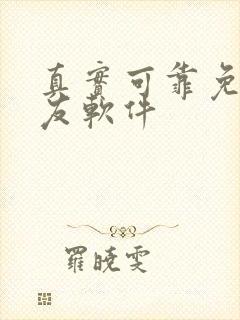 真實可靠免
友軟件
羅曉雯